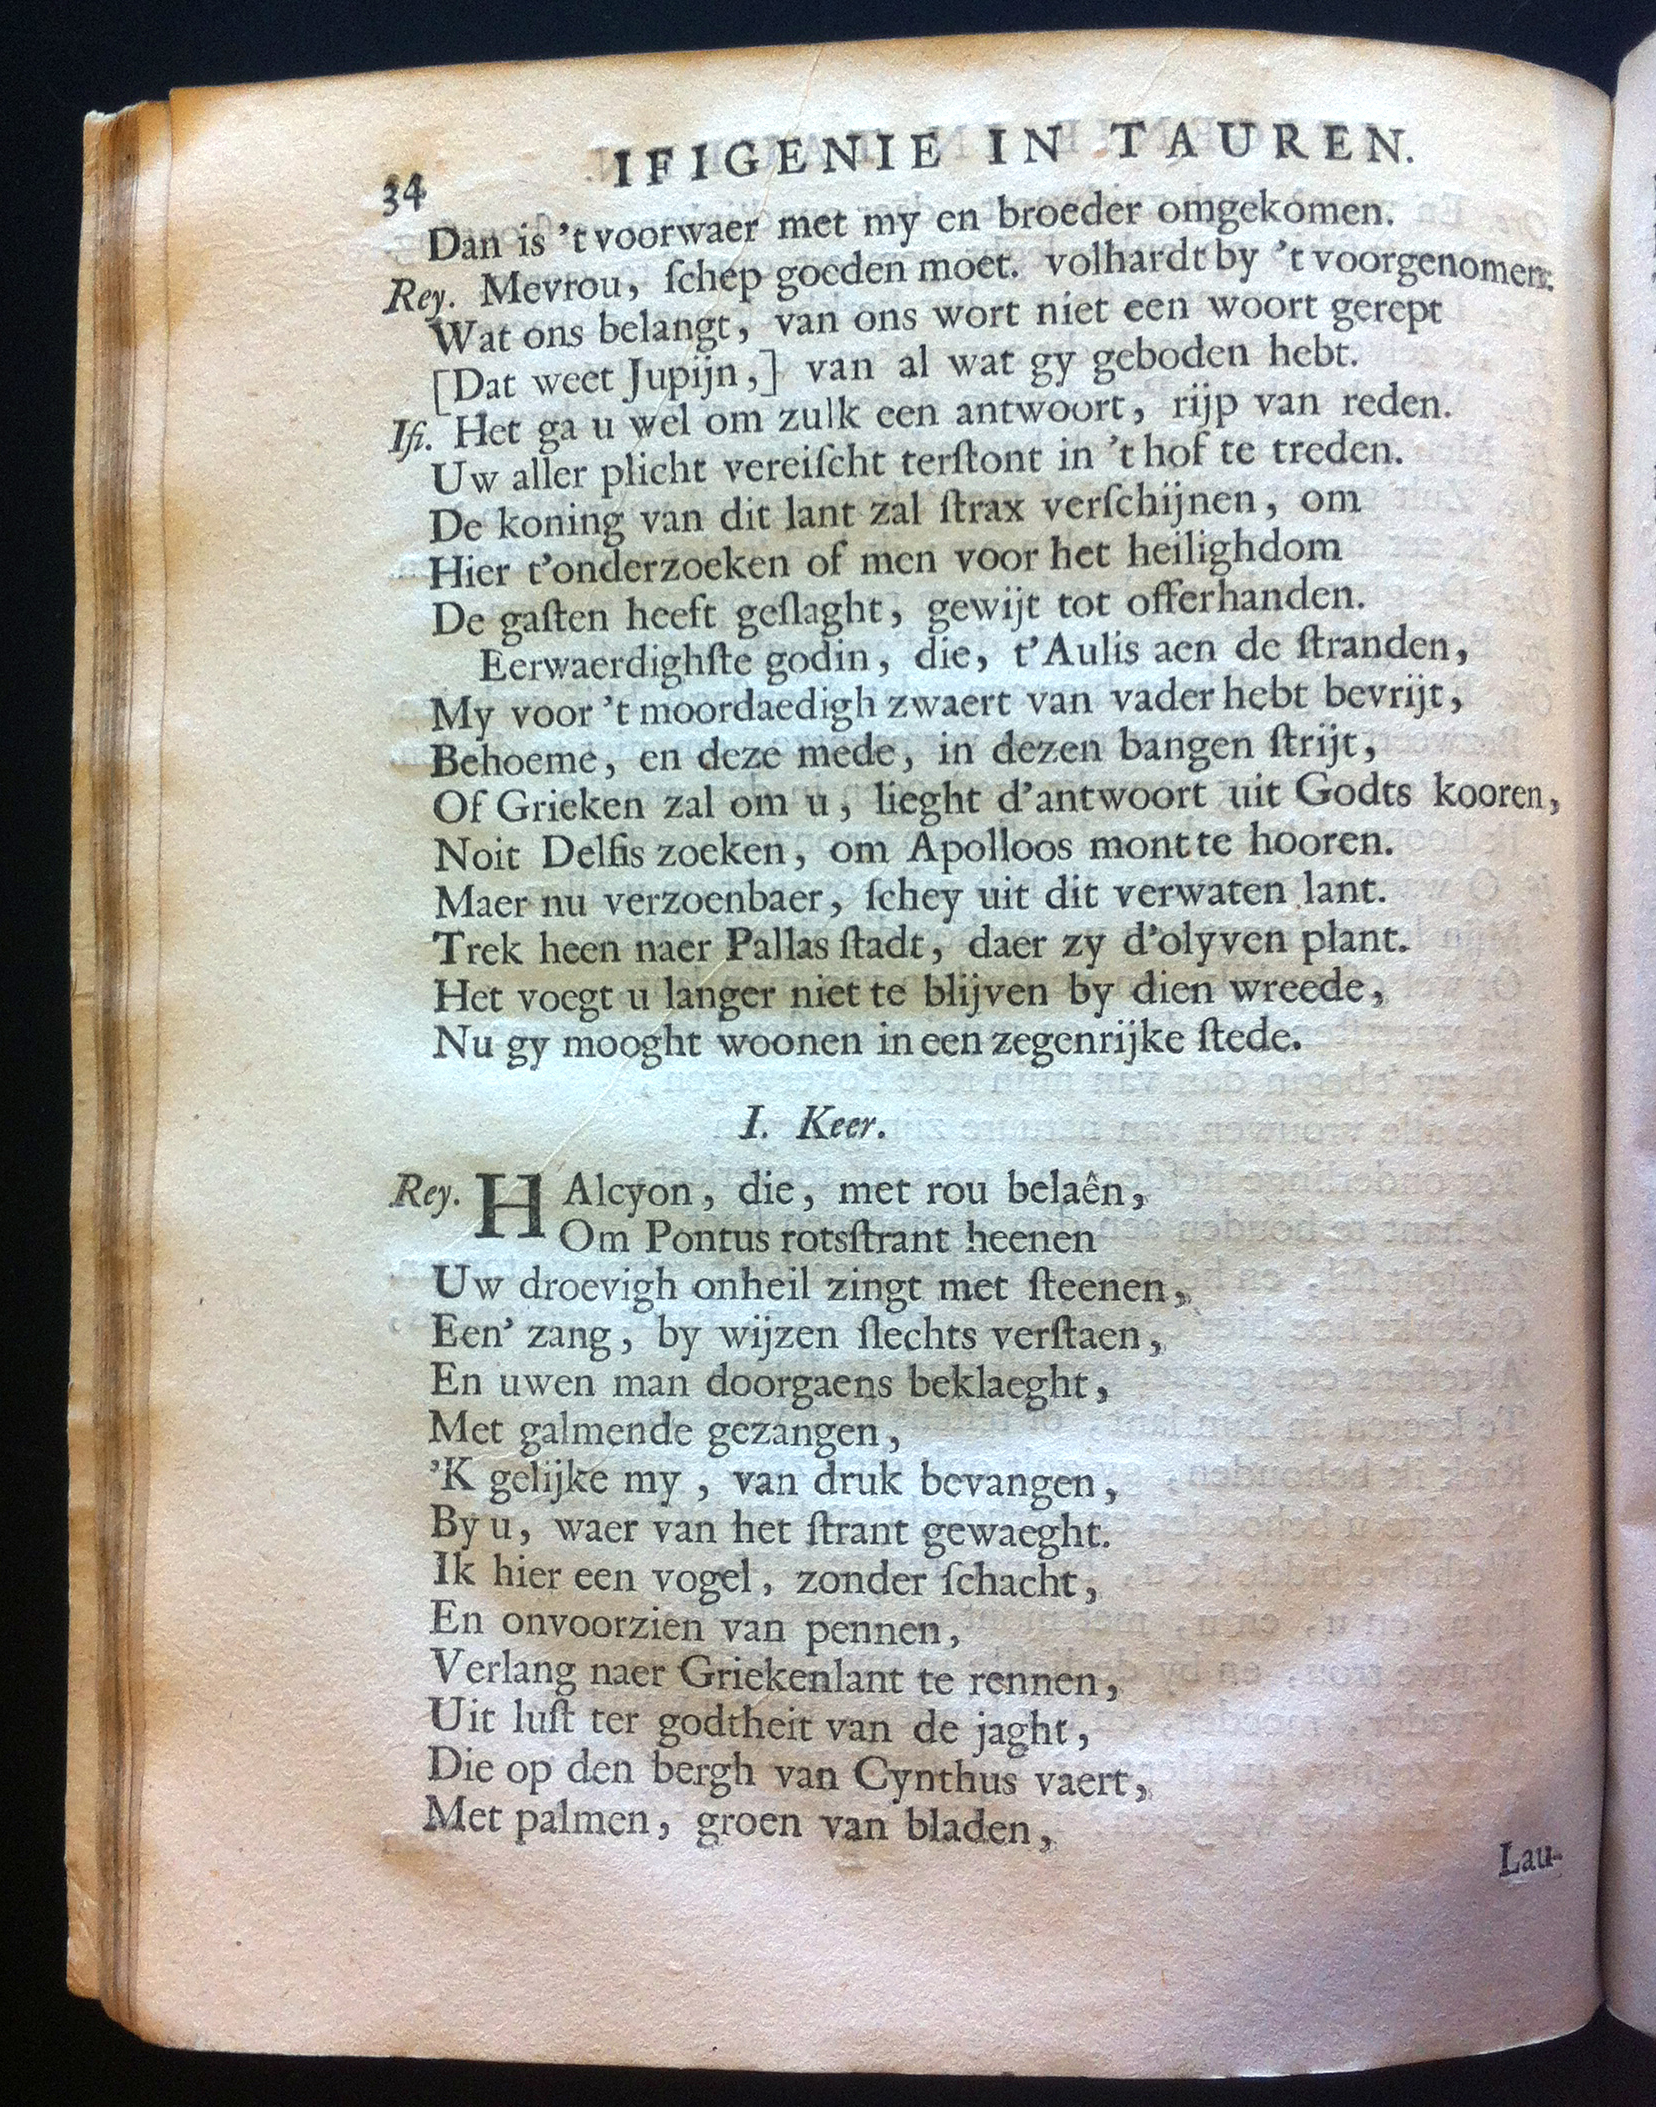 34 IFIGENIE IN TAUREN.
Dan is 't voorwaer met my en broeder omgekomen.
Rey. Mevrou, ſchep goeden moet. volhardt by 't voorgenomen.
Wat ons belangt, van ons wort niet een woort gerept
[Dat weet Jupijn,] van al wat gy geboden hebt.
Ifi. Het ga u wel om zulk een antwoort, rijp van reden.
Uw aller plicht vereiſcht terſtont in 't hof te treden.
De koning van dit lant zal ſtrax verſchijnen, om
Hier t'onderzoeken of men voor het heilighdom
De gaſten heeft geſlaght, gewijt tot offerhanden.
Eerwaerdighſte godin, die, t'Aulis aen de ſtranden,
My voor 't moordaedigh zwaert van vader hebt bevrijt,
Behoeme, en deze mede, in dezen bangen ſtrijt,
Of Grieken zal om u, lieght d'antwoort uit Godts kooren,
Noit Delfis zoeken, om Apolloos mont te hooren.
Maer nu verzoenbaer, ſchey uit dit verwaten lant.
Trek heen naer Pallas ſtadt, daer zy d'olyven plant.
Het voegt u langer niet te blijven by dien wreede,
Nu gy mooght woonen in een zegenrijke ſtede.
I. Keer.
Rey. HAlcyon, die, met rou belaên,
Om Pontus rotsſtrant heenen
Uw droevigh onheil zingt met ſteenen,
Een' zang, by wijzen ſlechts verſtaen,
En uwen man doorgaens beklaeght,
Met galmende gezangen,
'K gelijke my, van druk bevangen,
By u, waer van het ſtrant gewaeght.
Ik hier een vogel, zonder ſchacht,
En onvoorzien van pennen,
Verlang naer Griekenlant te rennen,
Uit luſt ter godtheit van de jaght,
Die op den bergh van Cynthus vaert,
Met palmen, groen van bladen,
Lau-